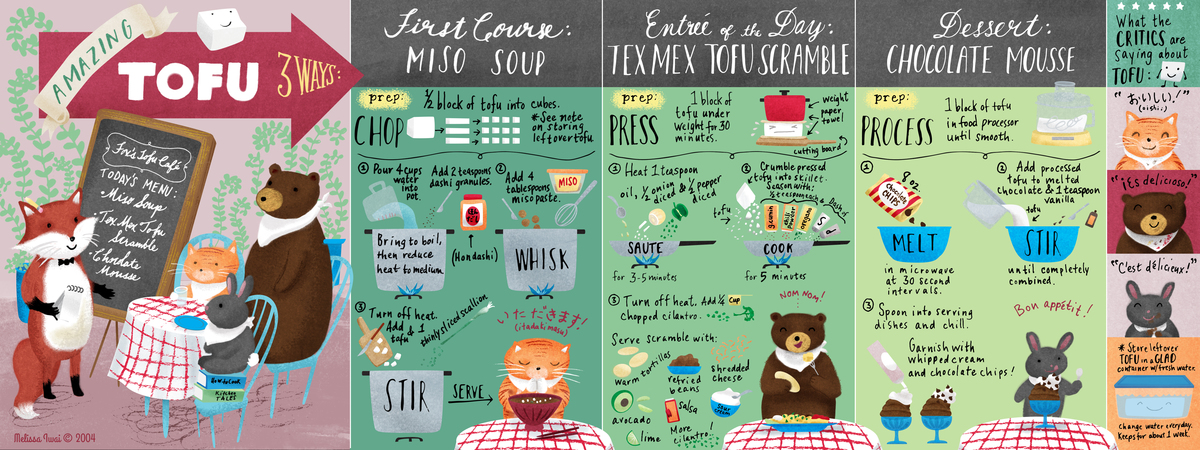 AMAZING
TOFU
3 WAYS:
Fox's Tofu Café
TODAY'S MENU:
Miso Soup
Tex Mex Tofu
Scramble
Chocolate
Mousse
How to Cook
Kitchen
TALES
Melissa Iwai © 2004
First Course:
MISO SOUP
prep:
½ block of tofu into cubes.
CHOP
*See note
on storing
leftover tofu.
① Pour 4 cups
water
into
pot.
Add 2 teaspoons
dashi granules.
② Add 4
tablespoons
miso paste.
MISO
Bring to boil,
then reduce
heat to medium.
(Hondashi)
WHISK
③ Turn off heat.
Add
tofu
& 1
thinly sliced scallion
いただきます!
(itadakimasu)
STIR
SERVE
Entrée of the Day:
TEX MEX TOFU SCRAMBLE
prep:
PRESS
1 block of
tofu under
weight for 30
minutes.
weight
paper
towel
cutting board
① Heat 1 teaspoon
oil, ½ onion
diced
& ½ pepper
diced
② Crumble pressed
tofu into skillet.
Season with:
½ teaspoon each &
Dash of
tofu
cumin
chili powder
oregano
SAUTE
COOK
for 3-5 minutes
for 5 minutes
③ Turn off heat. Add ¼ Cup
chopped cilantro.
NOM NOM!
Serve scramble with:
warm tortillas
refried
beans
shredded
cheese
avocado
Salsa
sour
cream
lime
More
cilantro!
Dessert:
CHOCOLATE MOUSSE
prep:
PROCESS
1 block of tofu
in food processor
until smooth.
①
8 oz
Chocolate
CHIPS
② Add processed
tofu to melted
chocolate & 1 teaspoon
vanilla
tofu
MELT
STIR
in microwave
at 30 second
intervals.
until completely
combined.
③ Spoon into serving
dishes and chill.
Bon appétit!
Garnish with
whipped cream
and chocolate chips!
What the
CRITICS are
saying about
TOFU:
"おいしい!"
(oishii)
"¡Es delicioso!"
"C'est délicieux!"
* Store leftover
TOFU in a GLAD
container w/fresh water.
Change water everyday.
Keeps for about 1 week.